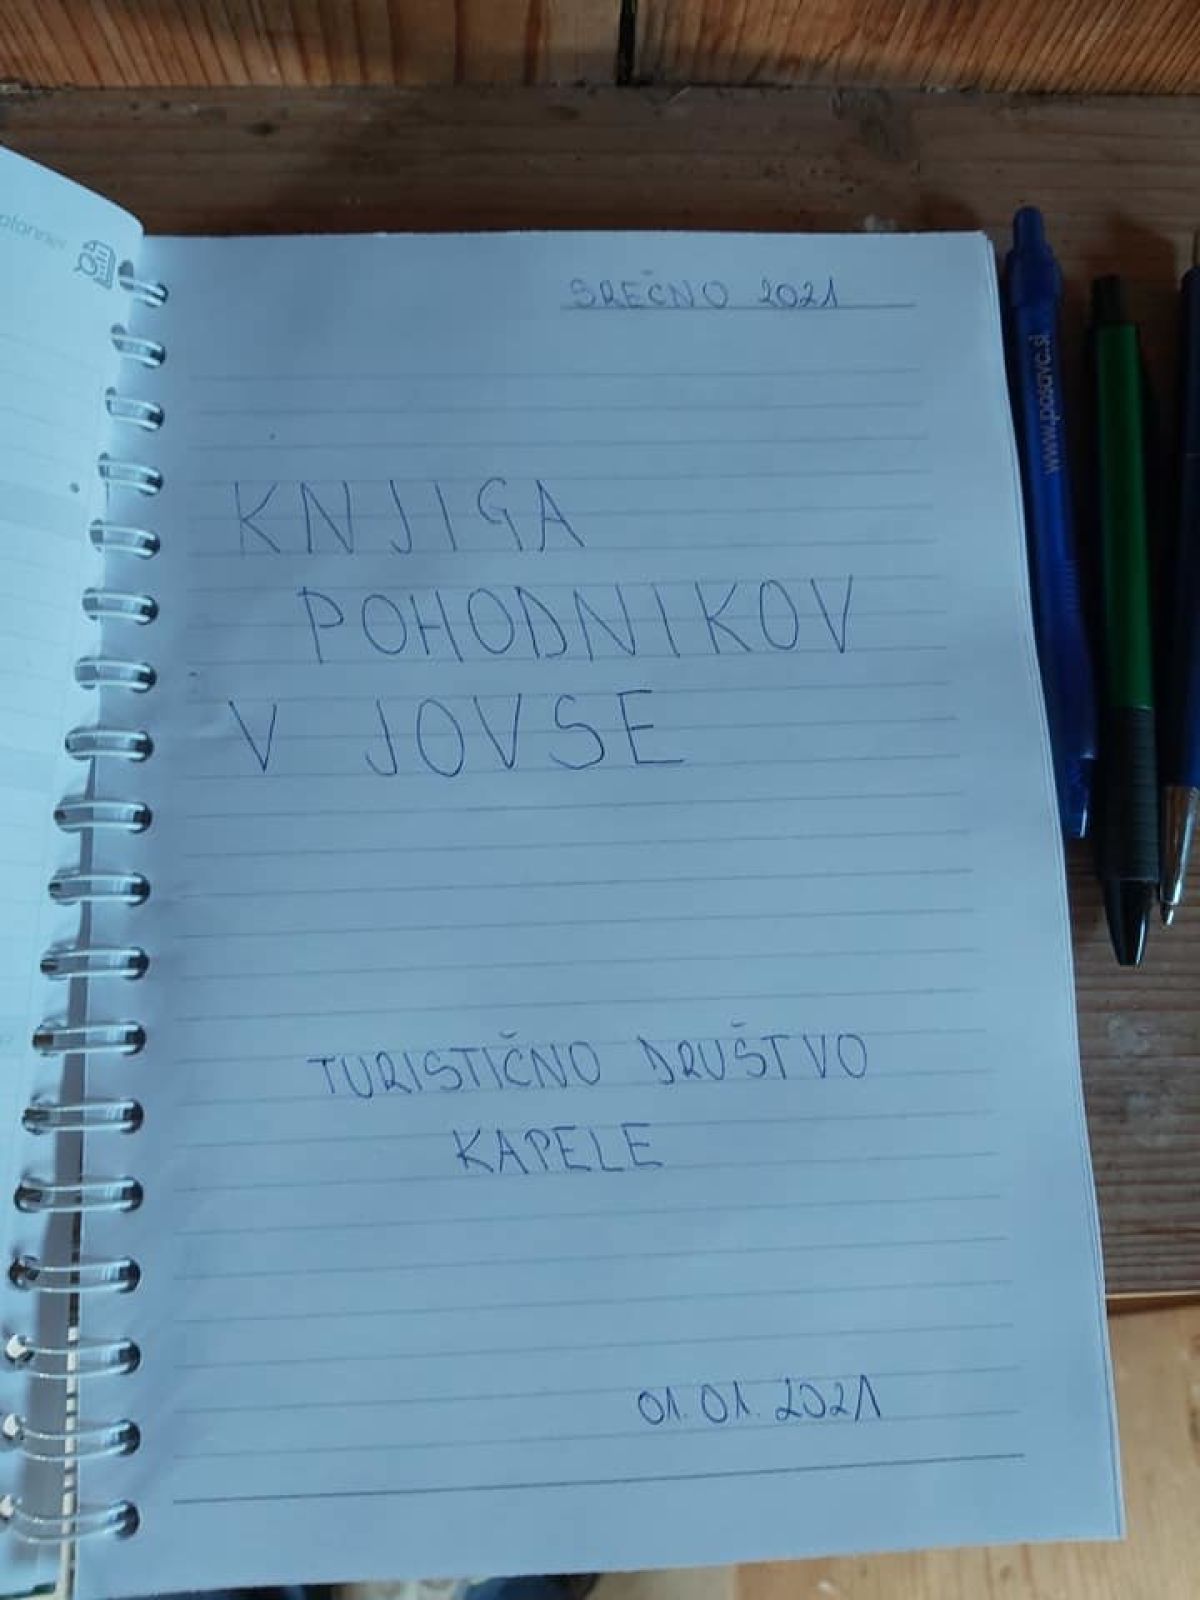 planner
SREČNO 2021
www.posavc.si
KNJIGA
POHODNIKOV
V JOVSE
TURISTIČNO DRUŠTVO
KAPELE
01.01.2021